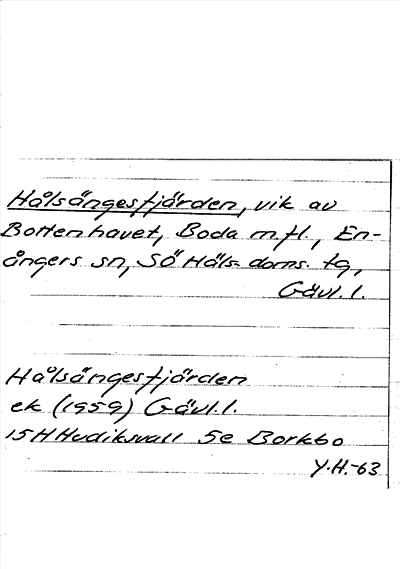 Hålsängesfjärden, vik av
Bottenhavet, Boda m.fl., En-
ångers sn, SÖ Häls. doms. tg,
Gävl. l.
Hålsängesfjärden
ek (1959) Gävl. l.
15H Hudiksvall 5e Borkbo
Y.H.-63